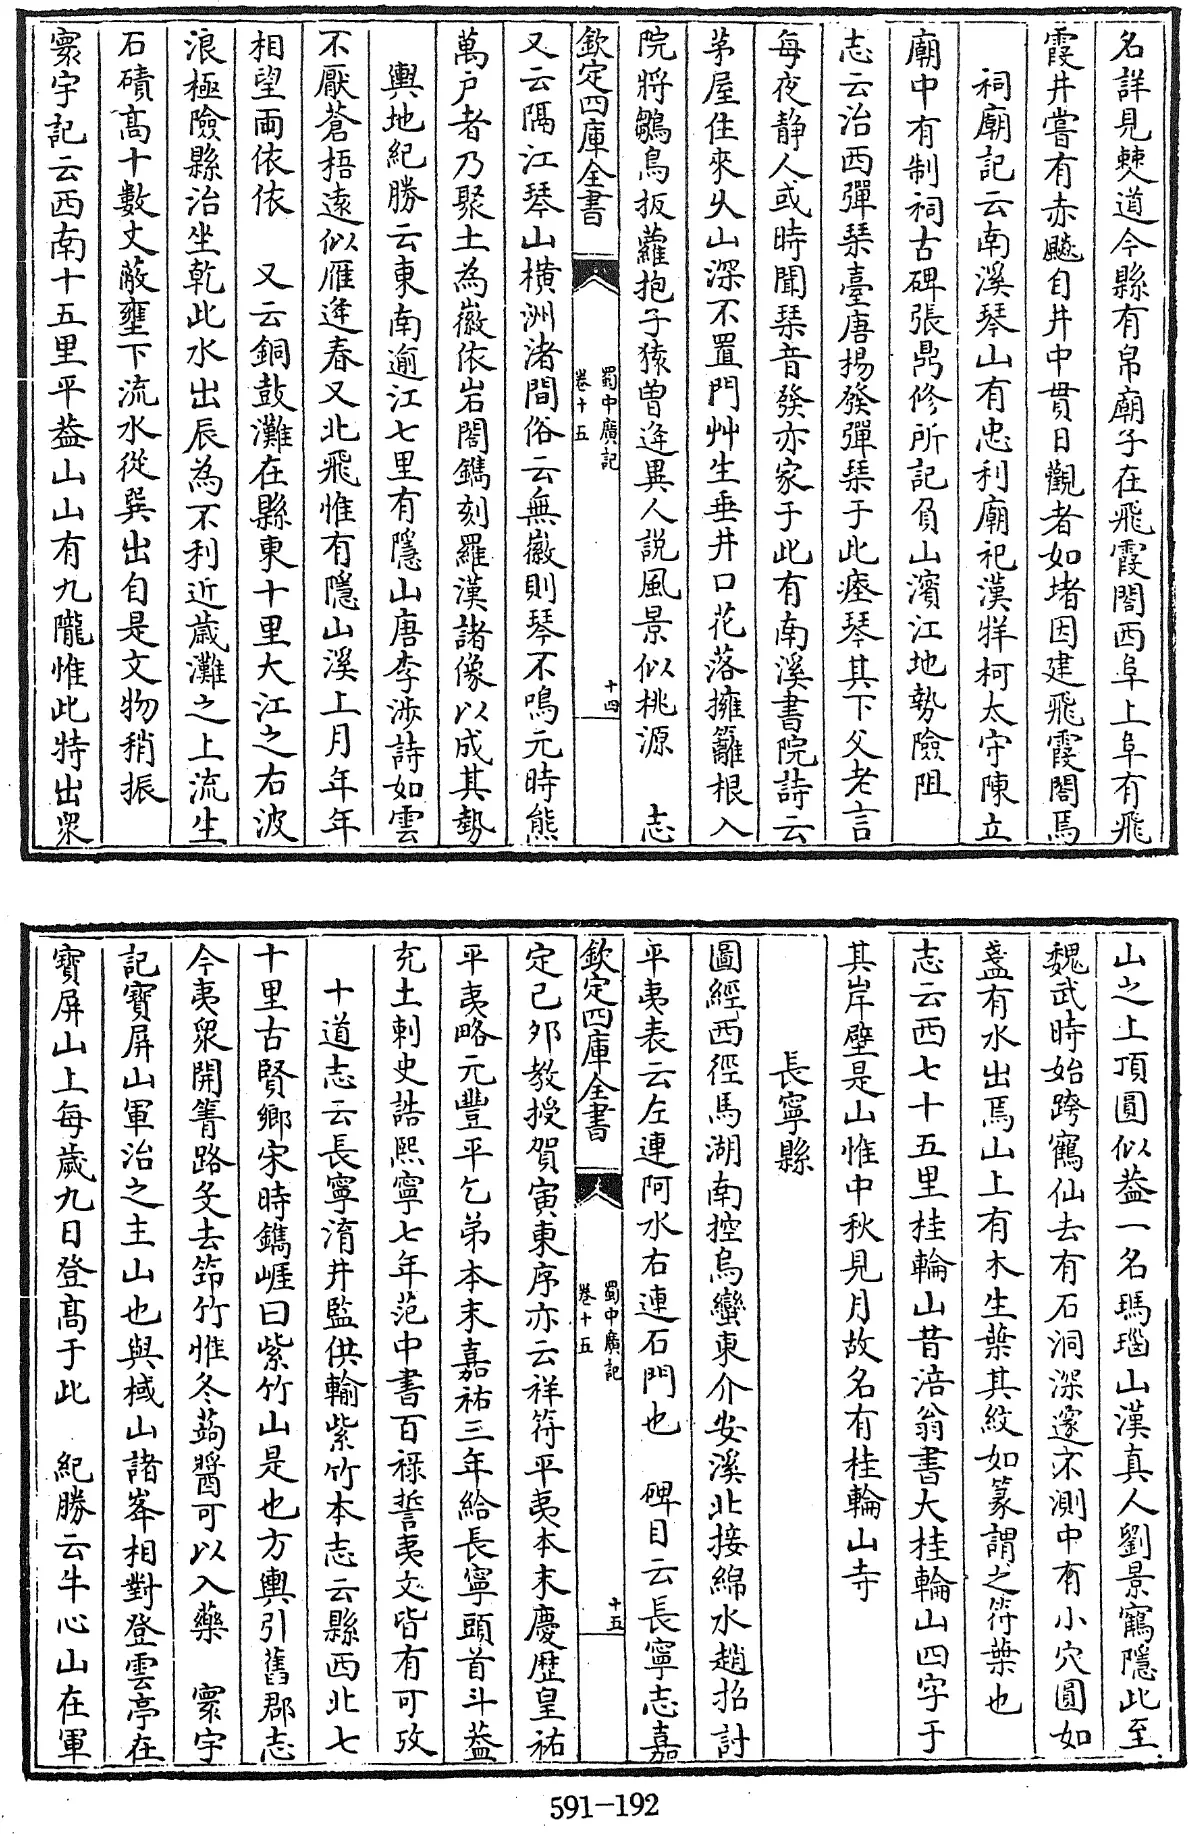 名詳見僰道今縣有帛廟子在飛霞閣西阜上阜有飛
霞井嘗有赤飈自井中貫日觀者如堵因建飛霞閣焉
祠廟記云南溪琴山有忠利廟祀漢牂柯太守陳立
廟中有制祠古碑張鼎修所記負山濱江地勢險阻
志云治西彈琹臺唐揚發彈琹于此瘞琴其下父老言
每夜静人或時聞琹音發亦家于此有南溪書院詩云
茅屋住來久山深不置門艸生垂井口花落擁籬根入
院將雛鳥扳蘿抱子猿曽逢異人説風景似桃源　志
欽定四庫全書
蜀中廣記
卷十五
十四
又云隔江琴山横洲渚間俗云無徽則琴不鳴元時熊
萬户者乃聚土為徽依岩閣鐫刻羅漢諸像以成其勢
輿地紀勝云東南逾江七里有隱山唐李渉詩如雲
不厭蒼梧遠似雁逢春又北飛惟有隱山溪上月年年
相望兩依依　又云銅鼓灘在縣東十里大江之右波
浪極險縣治坐乾此水出辰為不利近歳灘之上流生
石磧高十數丈蔽壅下流水從巽出自是文物稍振
寰宇記云西南十五里平葢山山有九隴惟此特出衆
山之上頂圓似葢一名瑪瑙山漢真人劉景鶴隱此至
魏武時始跨鶴仙去有石洞深邃不測中有小穴圓如
盞有水出焉山上有木生葉其紋如篆謂之符葉也
志云西七十五里桂輪山昔涪翁書大桂輪山四字于
其岸壁是山惟中秋見月故名有桂輪山寺
長寧縣
圖經西徑馬湖南控烏蠻東介安溪北接綿水趙招討
平夷表云左連阿水右連石門也　碑目云長寧志嘉
欽定四庫全書
蜀中廣記
卷十五
十五
定己夘教授賀寅東序亦云祥符平夷本末慶歴皇祐
平夷略元豐平乞弟本末嘉祐三年給長寧頭首斗葢
充土刺史誥熙寧七年范中書百禄誓夷文皆有可攷
十道志云長寧淯井監供輸紫竹本志云縣西北七
十里古賢鄉宋時鐫崕曰紫竹山是也方輿引舊郡志
今夷衆開箐路芟去筇竹惟冬蒟醬可以入藥　寰宇
記寶屏山軍治之主山也與棫山諸峯相對登雲亭在
寶屏山上每歲九日登高于此　紀勝云牛心山在軍
591-192